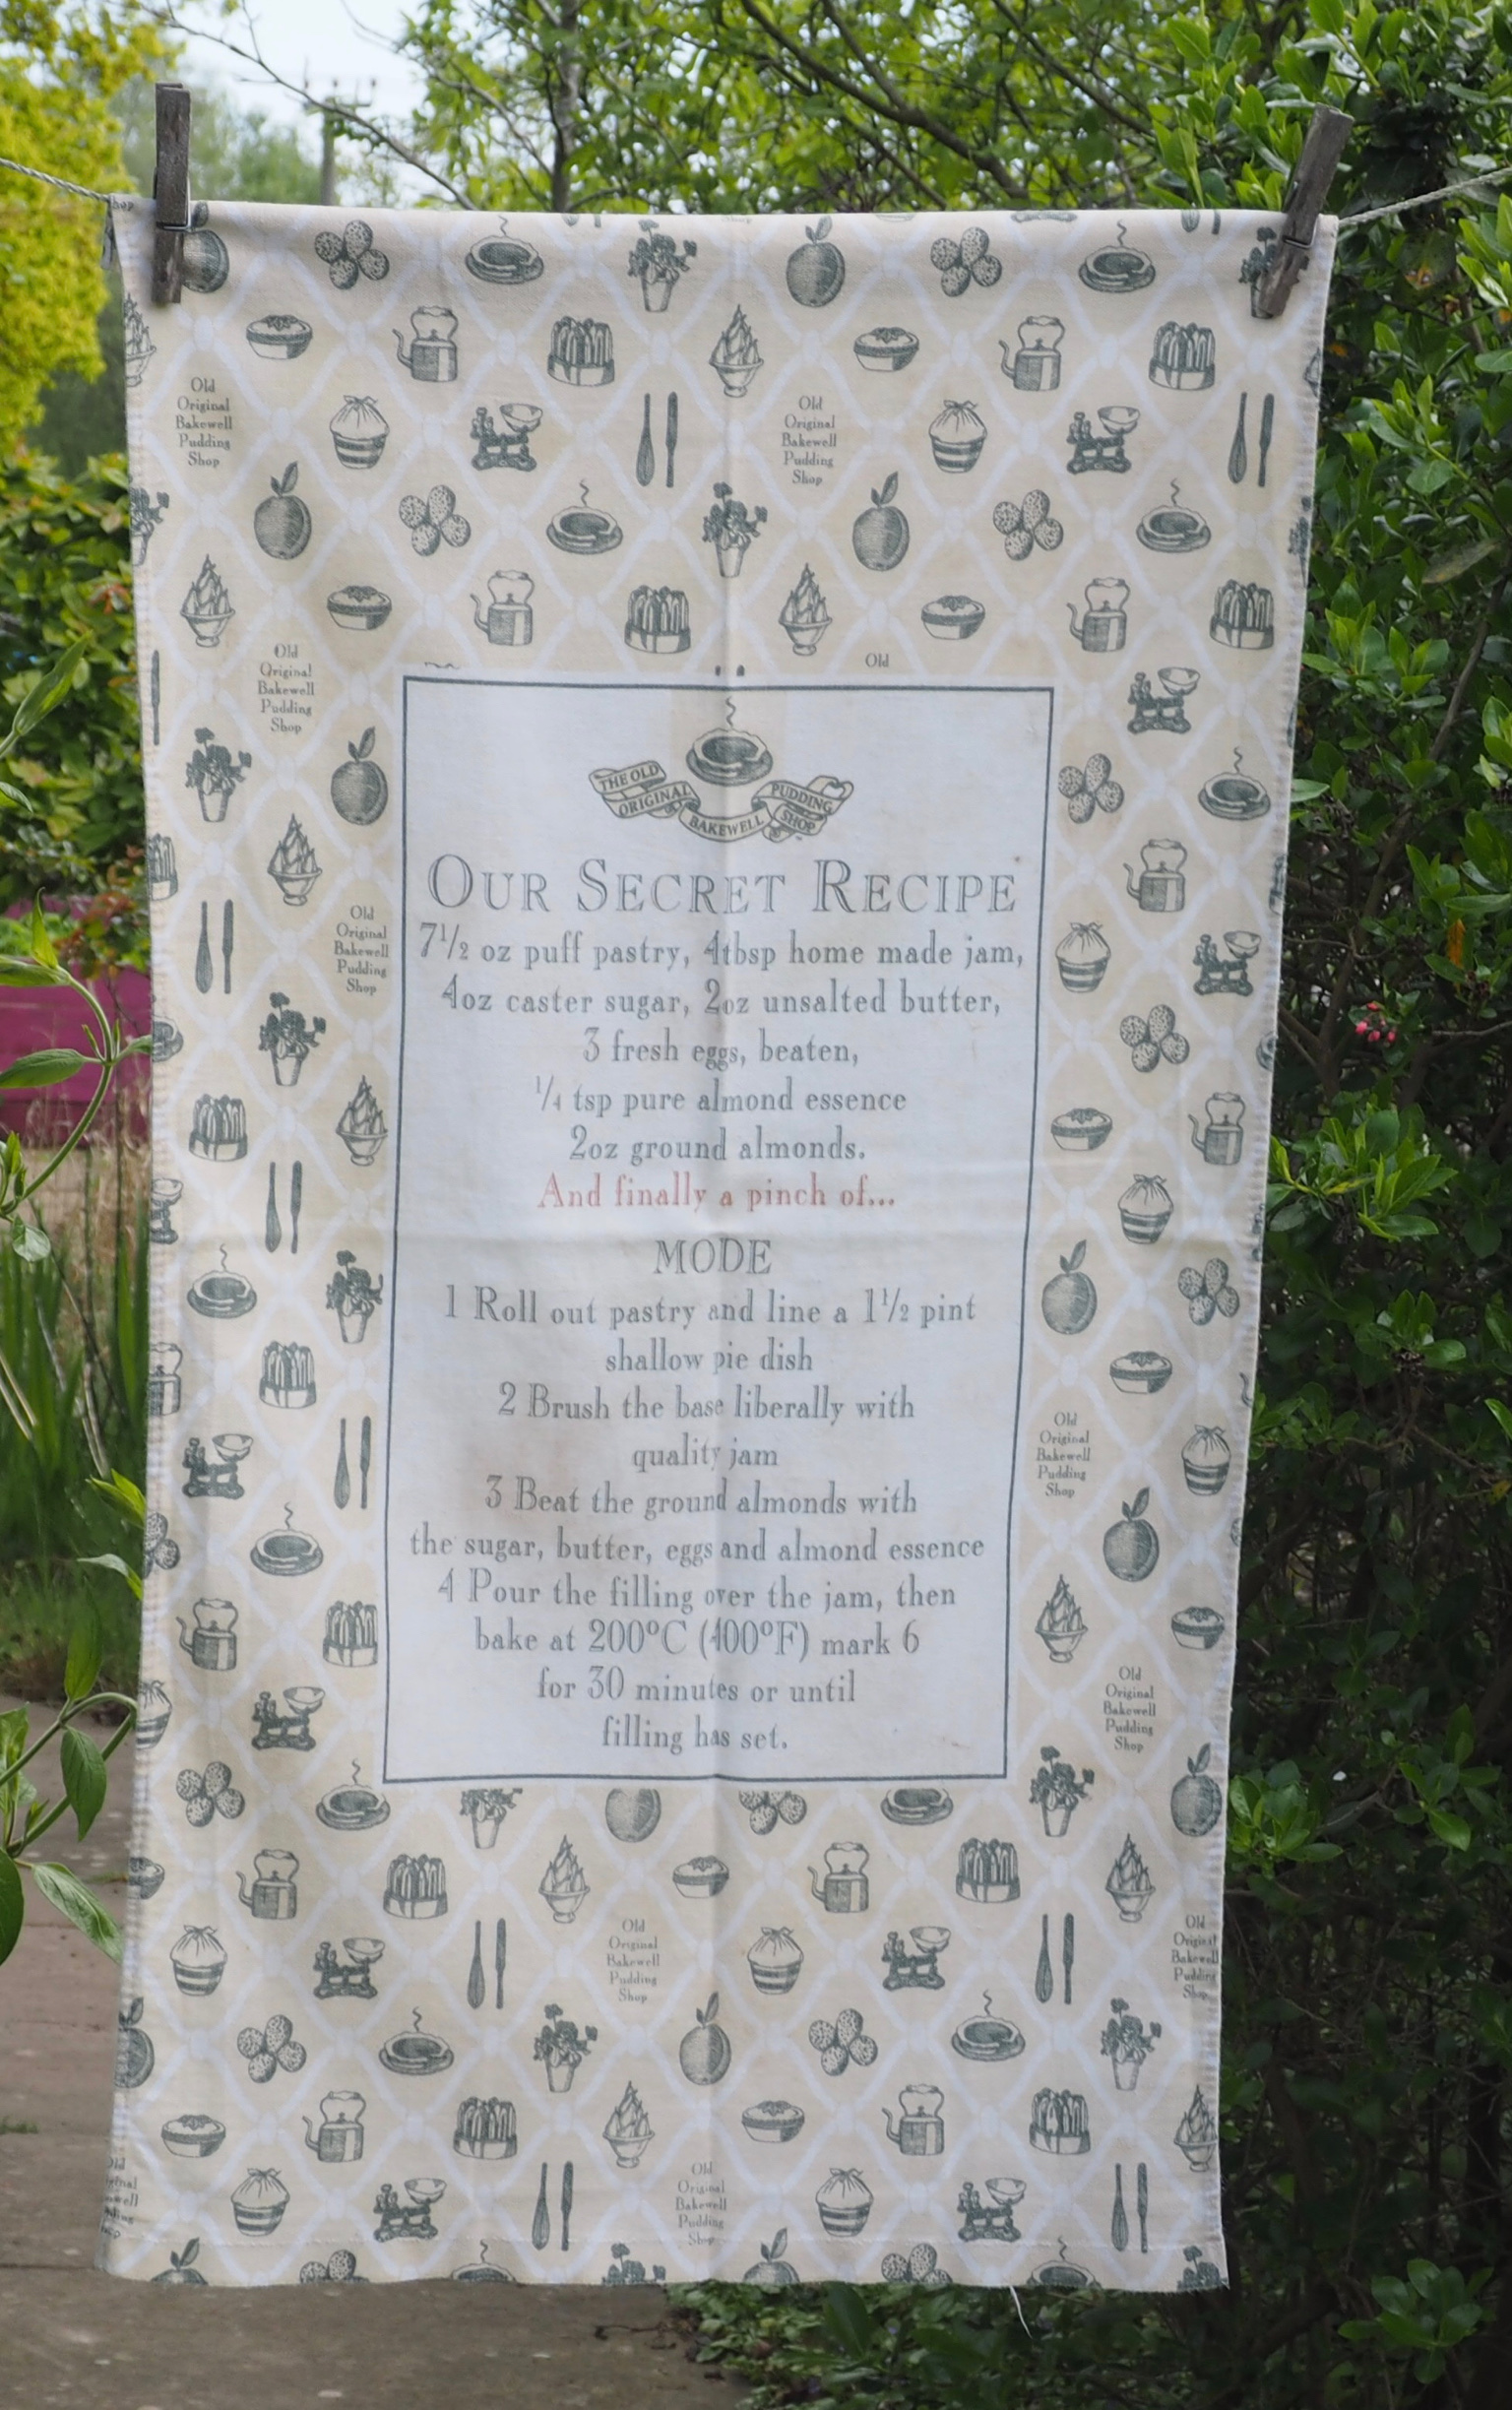 hop
Shop
Old
Original
Bakewell
Pudding
Shop
Old
Original
Bakewell
Pudding
Shop
Old
Original
Bakewell
Pudding
Shop
Old
THE OLD
ORIGINAL
BAKEWELL
PUDDING
SHOP
OUR SECRET RECIPE
7½ oz puff pastry, 4tbsp home made jam,
4oz caster sugar, 2oz unsalted butter,
3 fresh eggs, beaten,
¼ tsp pure almond essence
2oz ground almonds.
And finally a pinch of...
MODE
1 Roll out pastry and line a 1½ pint
shallow pie dish
2 Brush the base liberally with
quality jam
3 Beat the ground almonds with
the sugar, butter, eggs and almond essence
4 Pour the filling over the jam, then
bake at 200°C (400°F) mark 6
for 30 minutes or until
filling has set.
Old
Original
Bakewell
Pudding
Shop
Old
Original
Bakewell
Pudding
Shop
Old
Original
Bakewell
Pudding
Shop
Old
Original
Bakewell
Pudding
Shop
Old
Original
Bakewell
Pudding
Shop
Old
Original
Bakewell
Pudding
Shop